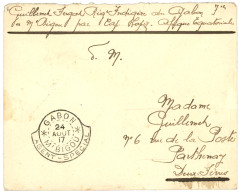 Guillemet Sergent Rég. Indigène du Gabon
à M'Bigou par Cap Lopez Afrique Equatoriale
F. M.
GABON
24
AOUT
17
M'BIGOU
AGENT-SPECIAL
Madame
Guillemet
N°6 rue de la Poste
Parthenay
Deux-Sèvres